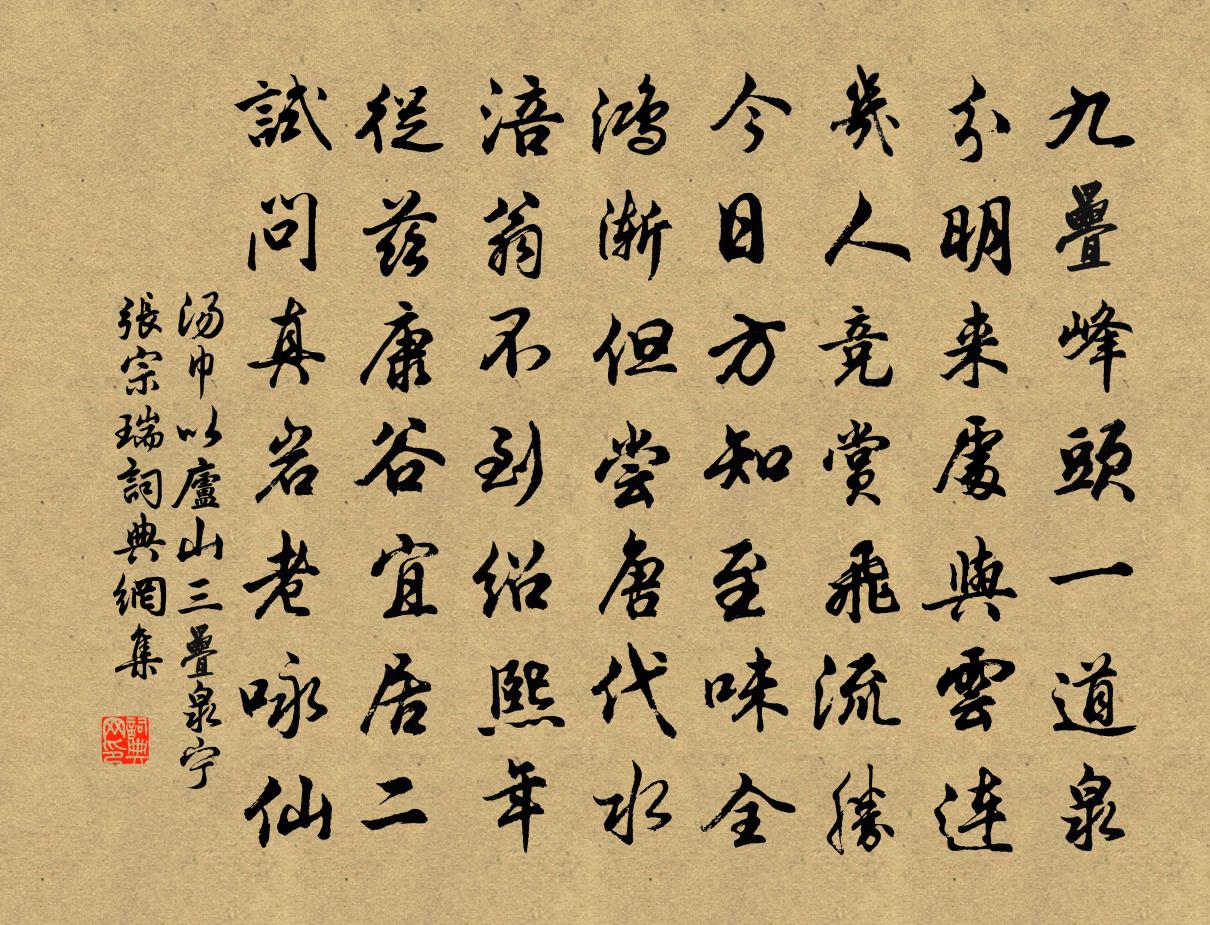 九疊峰頭一道泉
分明来處與雲連
幾人竞赏飛流勝
今日方知至味全
鴻渐但尝唐代水
涪翁不到绍熙年
從兹康谷宜居二
試問真岩老咏仙
汤巾以廬山三疊泉宁
張宗瑞詞典網集
詞典网印